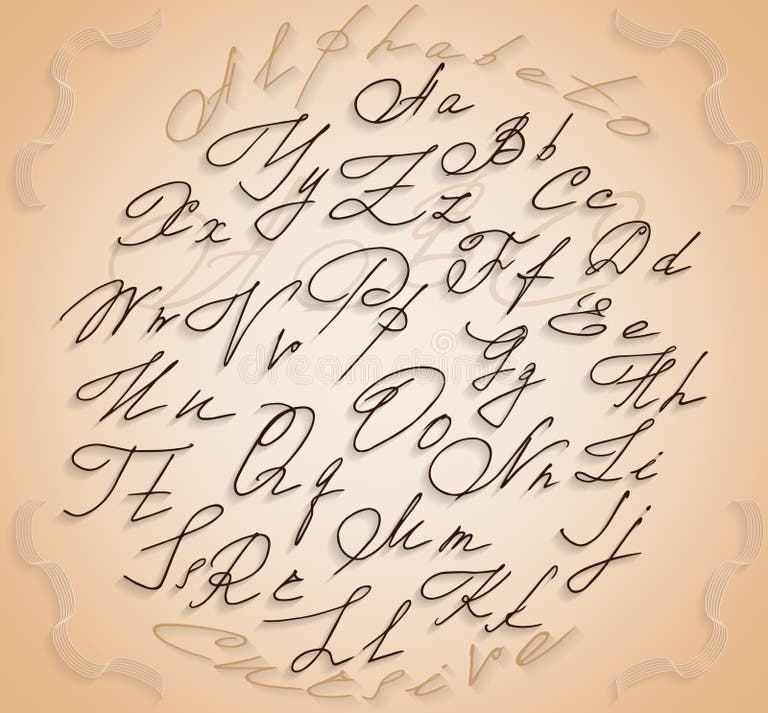 Alphabeto
Aa
Bb
Yy Zz Cc
Xx
A B C
Ff Dd
Pp
Ww Vv Ee
Gg
Hh
Uu Oo
Qq Nn Ii
Tt
Mm Jj
Ss Rr
Kk
Ll
Cursive
dreamstime